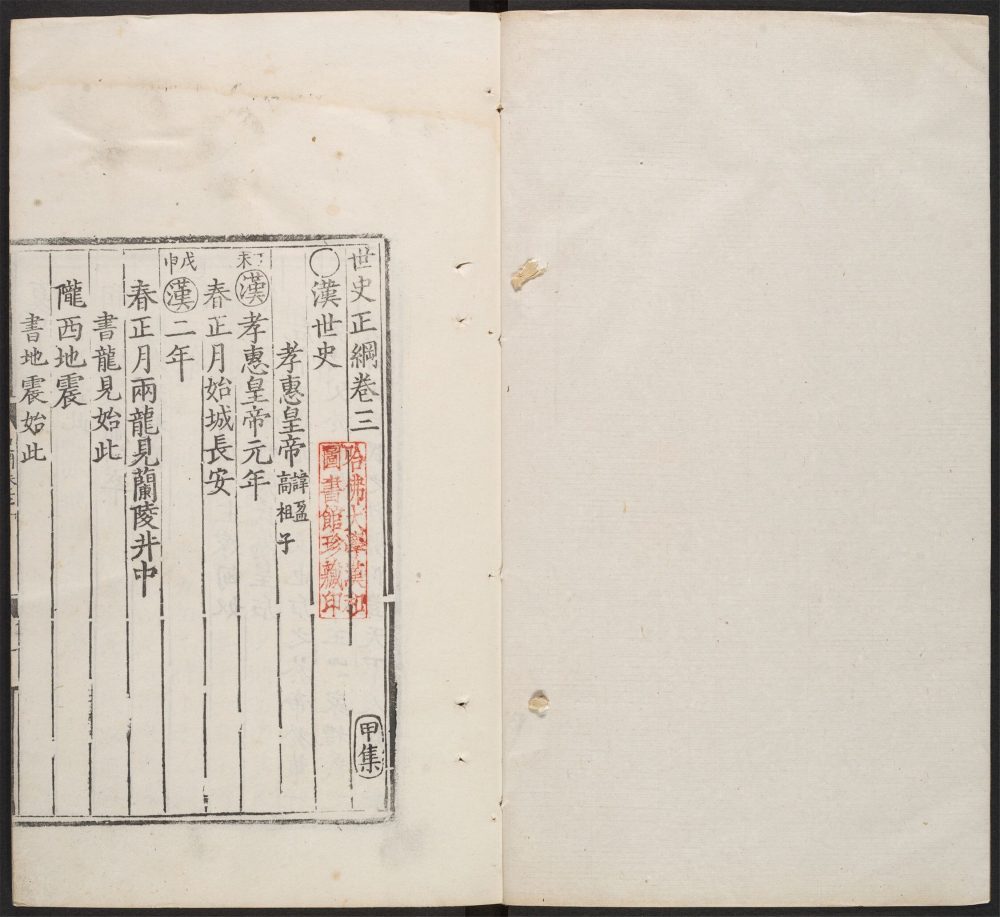 世史正綱卷三 甲集
○漢世史
孝惠皇帝 諱盈高祖子
丁未 漢 孝惠皇帝元年
春正月始城長安
戊申 漢 二年
春正月兩龍見蘭陵井中
書龍見始此
隴西地震
書地震始此
哈佛大學漢和
圖書館珍藏印